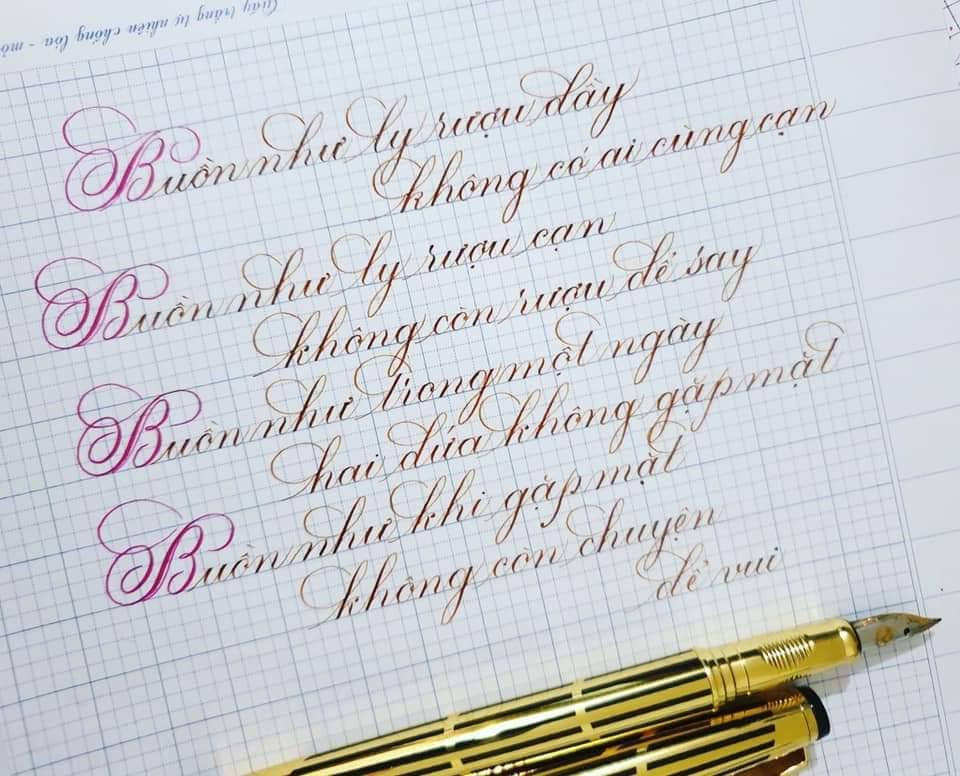 Giấy trắng tự nhiên chống lóa - mỏ
Buồn như ly rượu đầy
không có ai cùng cạn
Buồn như ly rượu cạn
không còn rượu để say
Buồn như trong một ngày
hai đứa không gặp mặt
Buồn như khi gặp mặt
không còn chuyện
để vui